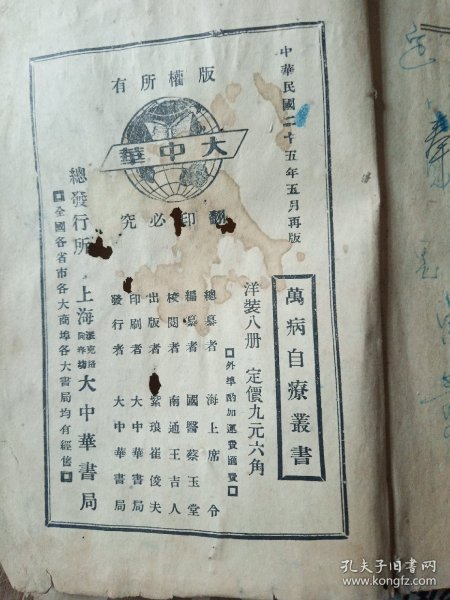 中華民國二十五年五月再版
萬病自療叢書
洋裝八册 定價九元六角
外埠酌加運費匯費
版權所有
大中華
翻印必究
總纂者 海上席令
編纂者 國醫蔡玉堂
校閱者 南通王吉人
出版者 紫琅崔俊夫
印刷者 大中華書局
發行者 大中華書局
總發行所 上海 大中華書局
全國各省市各大商埠各大書局均有經售
孔夫子旧书网
www.kongfz.com